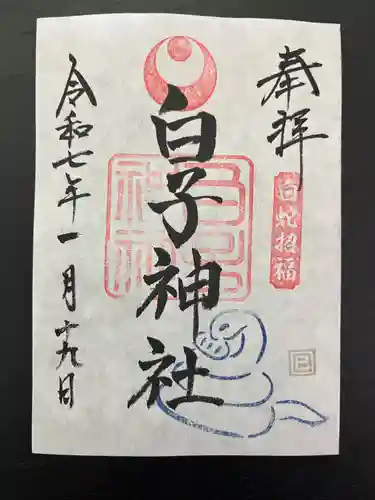 奉拝
白蛇招福
巳
白子神社
白子神社
令和七年一月十九日